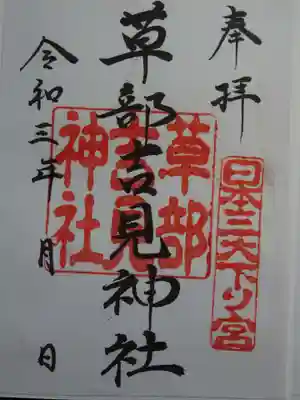 奉拝
日本三大下り宮
草部吉見神社
草部吉見神社
令和三年 月 日